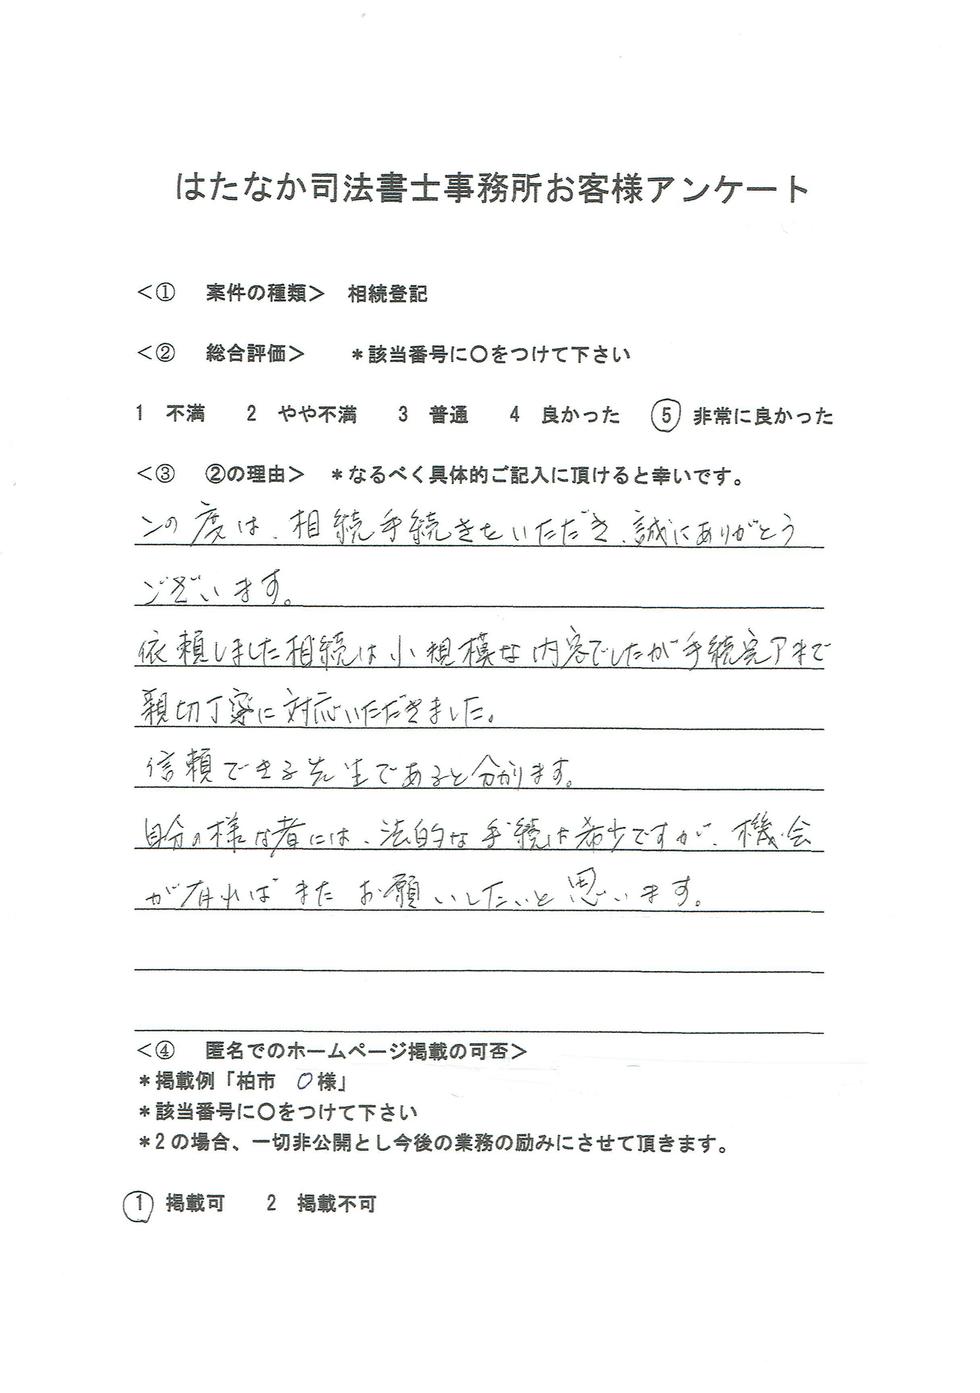 はたなか司法書士事務所お客様アンケート
＜①　案件の種類＞　相続登記
＜②　総合評価＞　＊該当番号に〇をつけて下さい
1　不満　2　やや不満　3　普通　4　良かった　⑤　非常に良かった
＜③　②の理由＞　＊なるべく具体的ご記入に頂けると幸いです。
この度は、相続手続きをいただき、誠にありがとう
ございます。
依頼しました相続は小規模な内容でしたが手続完了まで
親切丁寧に対応いただきました。
信頼できる先生であると分かります。
自分の様な者には、法的な手続は希少ですが、機会
が有ればまたお願いしたいと思います。
＜④　匿名でのホームページ掲載の可否＞
＊掲載例「柏市　〇様」
＊該当番号に〇をつけて下さい
＊2の場合、一切非公開とし今後の業務の励みにさせて頂きます。
①　掲載可　2　掲載不可